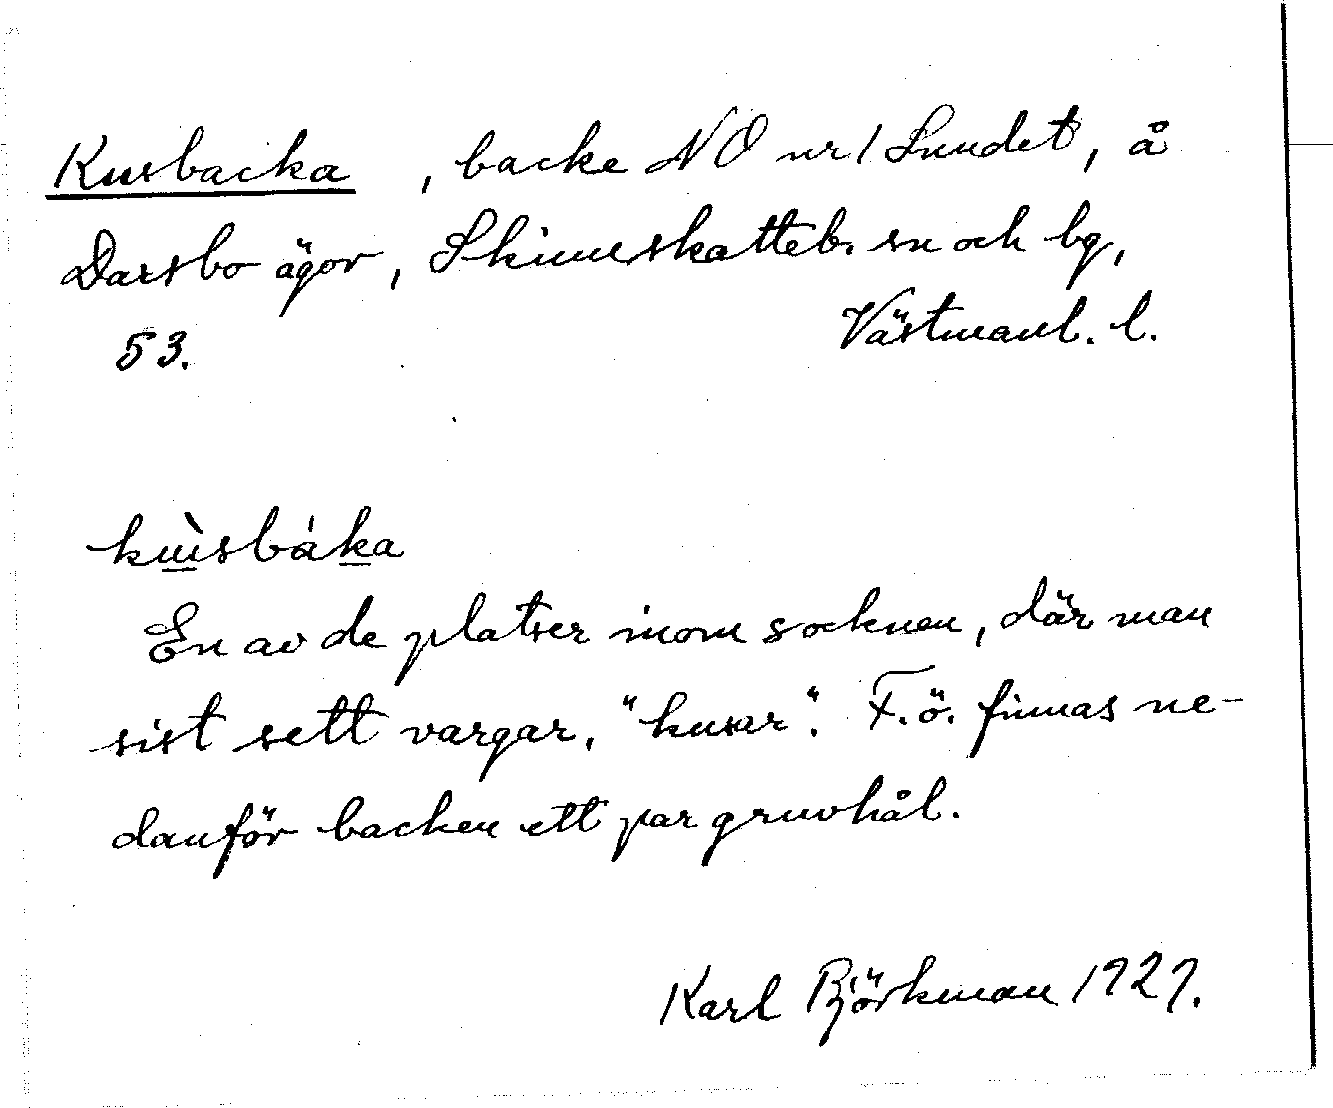 Kusbacka, backe NO nr 1 Sundet, å
Darsbo ägor, Skinnskatteb. sn och bg,
53. Västmanl. l.
kùsbáka
En av de platser inom socknen, där man
sist sett vargar, "kusar". F.ö. finnas ne-
danför backen ett par gruvhål.
Karl Björkman 1927.